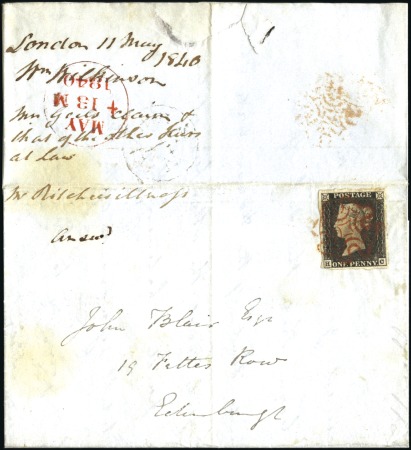 London 11 May
1840
Wm Wilkinson
MAY
13 M
1840
claim &
that of the other Heirs
at law
Mr Ritchie's illness
Answd
POSTAGE
ONE PENNY
John Blair Esqr
19 Fettes Row
Edinburgh